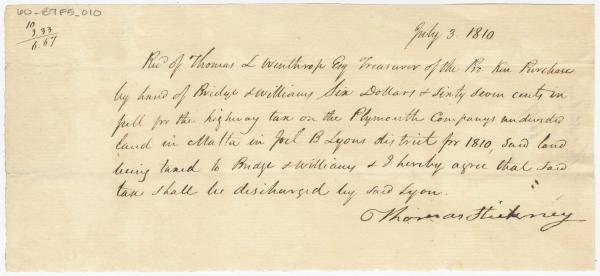 60-E7F5-010
10
3.33
6.67
July 3. 1810
Recd of Thomas L Winthrop Esq Treasurer of the Pro Ken Purchase
by hand of Bridge & Williams Six Dollars & Sixty Seven cents in
full for the highway tax on the Plymouth Companys undivided
land in Malta in Joel B Lyons district for 1810, Said land
being taxed to Bridge & Williams & I hereby agree that said
tax shall be discharged by said Lyon.
Thomas Stickney